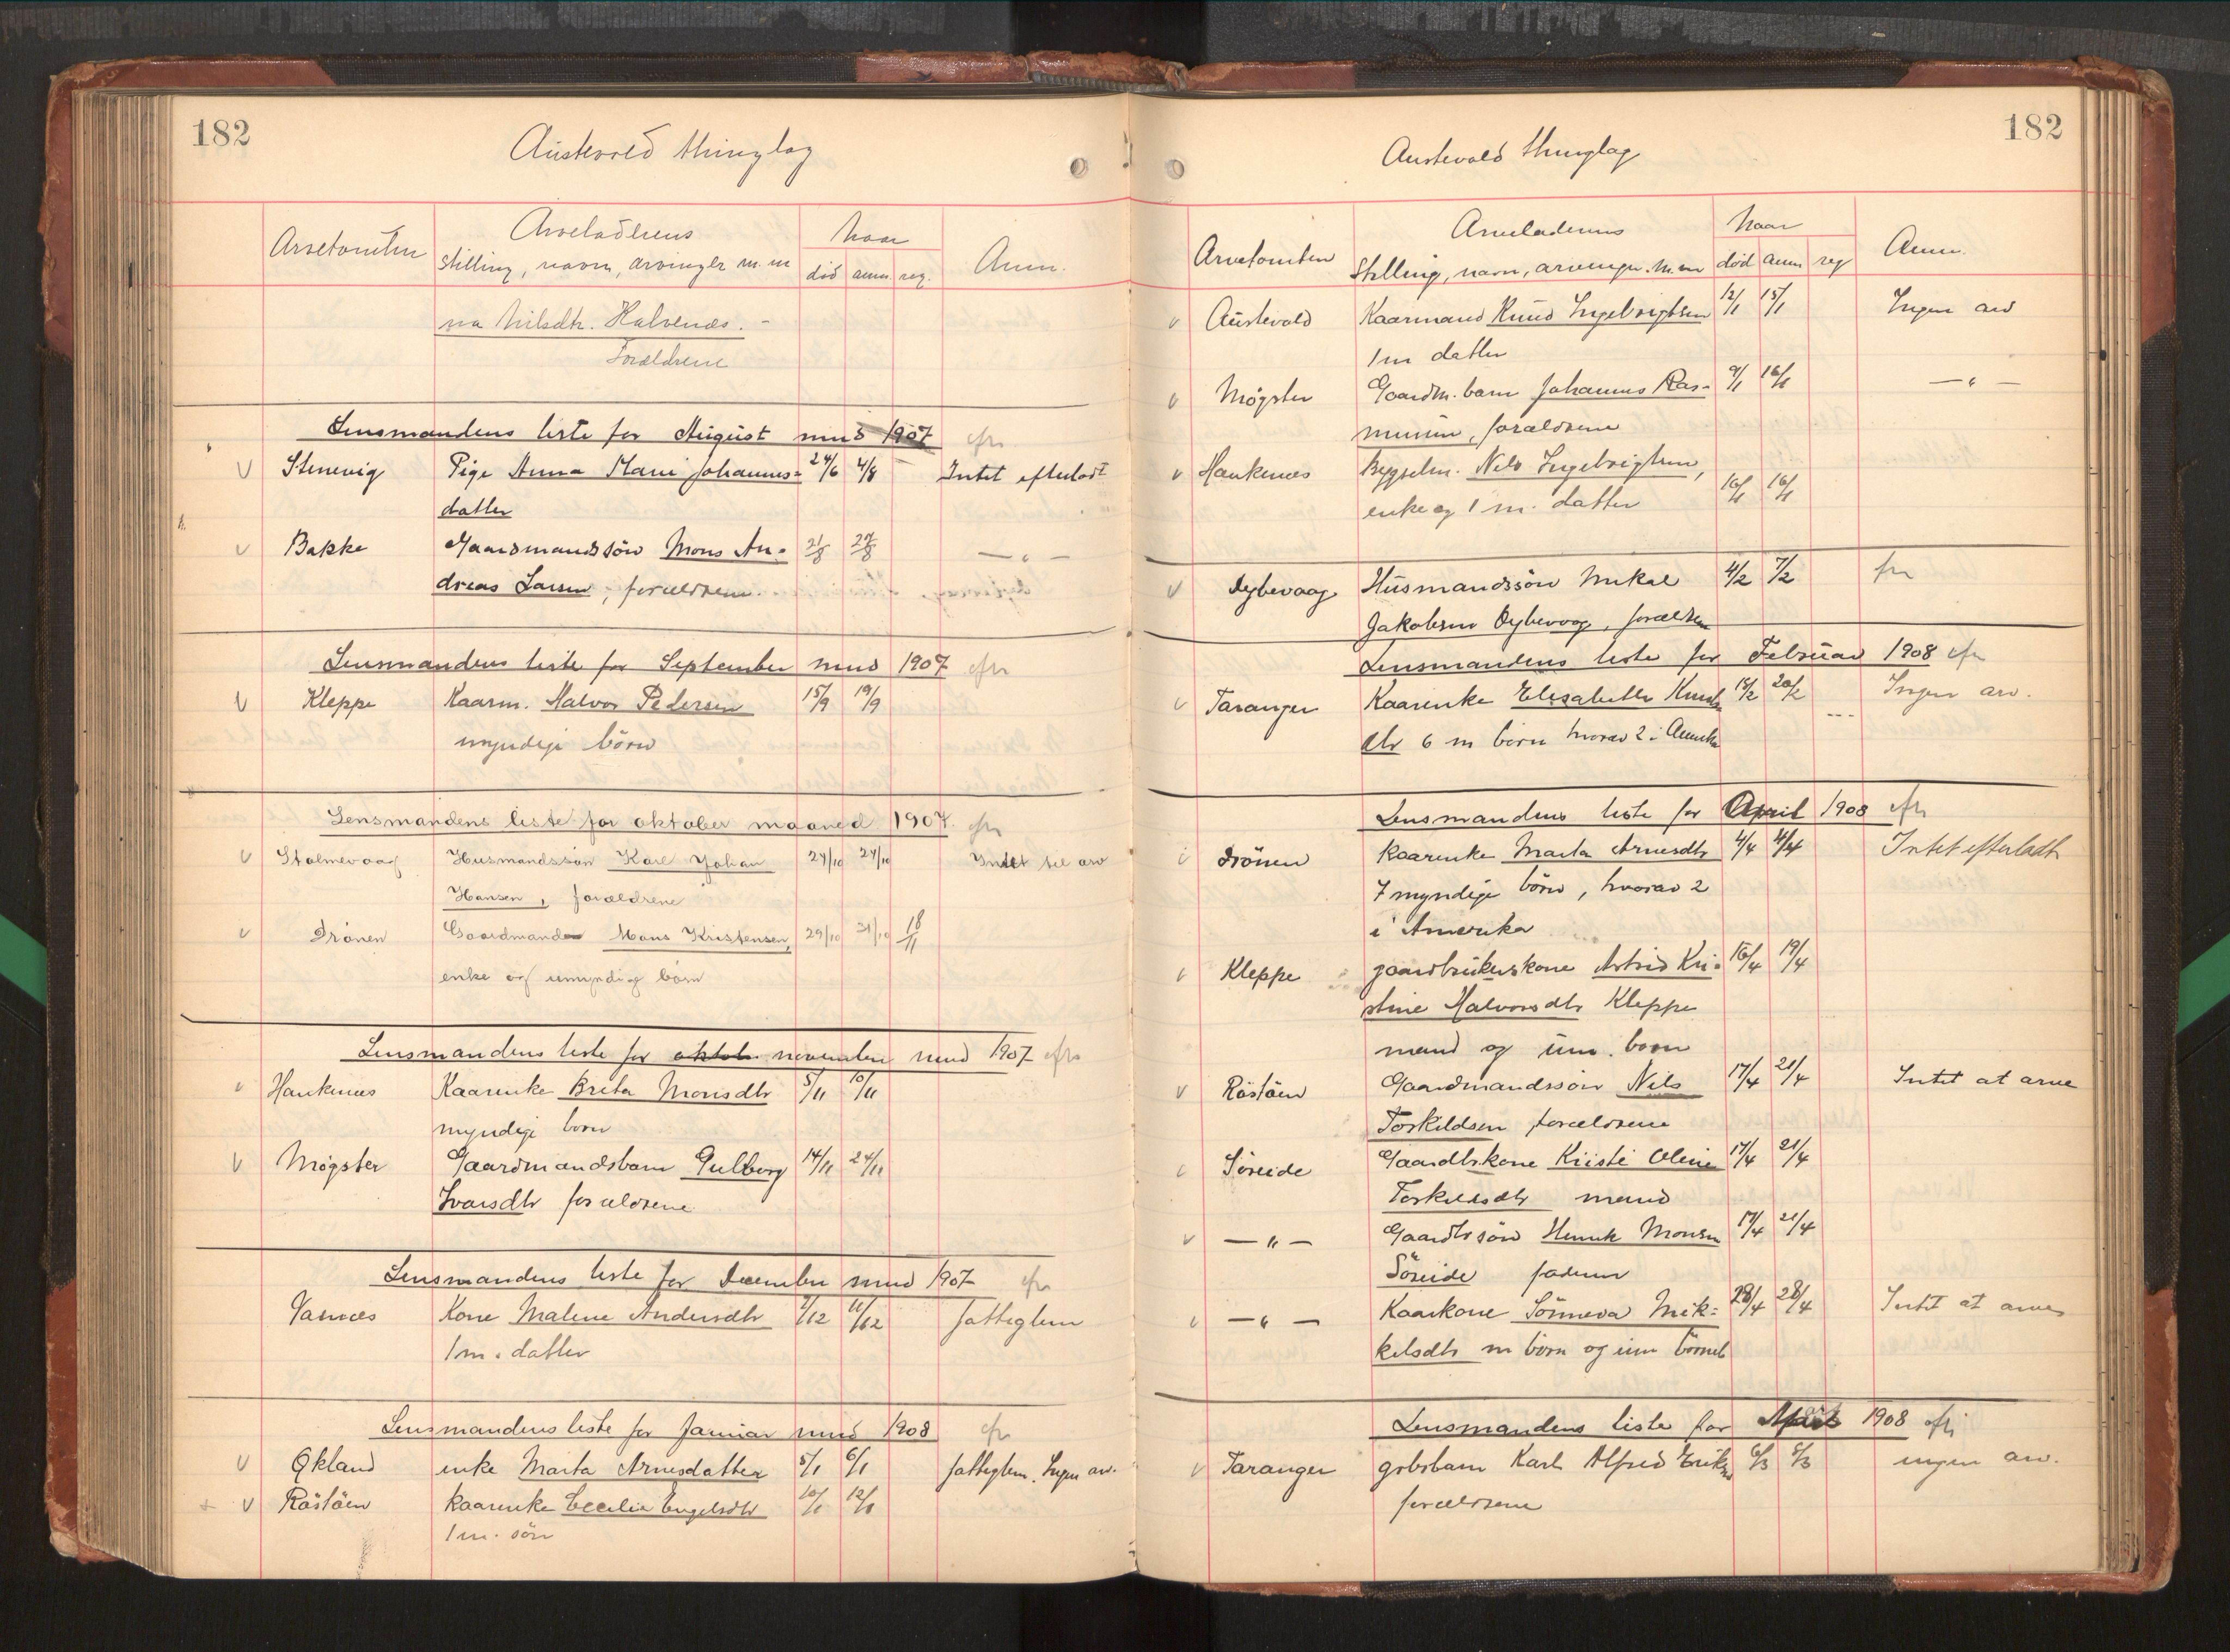 182
Austevold thinglag
Arvetomten
Arveladerens
stilling, navn, arvinger m.m
Naar
død anm. reg.
Anm.
na Nilsdtr. Halvenæs. -
Forældrene
Lensmandens liste for August mnd 1907 efr
v Stenevig Pige Anna Marie Johannes= 24/6 4/8 Intet efterladt
datter
v Bakke Gaardmandssön Mons An= 21/8 27/8 — " —
dreas Larsen, forældrene.
Lensmandens liste for September mnd 1907 efr
v Kleppe Kaarm. Halvor Pedersen 15/9 19/9
myndige börn
Lensmandens liste for oktober maaned 1907. efr
v Stolmevaag Husmandssön Karl Johan 24/10 27/10 Intet til arv
Hansen, forældrene
v Drönen Gaardmand Mons Kristensen, 29/10 31/10 18/11
enke og umyndig barn
Lensmandens liste for oktob november mnd 1907 efr
v Haukenæs Kaarenke Brita Monsdtr 5/11 10/11
myndige born
v Møgster Gaardmandsbarn Gulborg 14/11 24/11
Ivarsdtr forældrene
Lensmandens liste for December mnd 1907 efr
Vasnæs Kone Malene Andersdtr 7/12 11/12 fattiglem
1 m. datter
Lensmandens liste for Januar mnd 1908 efr
v Økland enke Marta Arnesdatter 5/1 6/1 fattiglem. Ingen arv.
+ v Röstöen Kaarenke Cecilia Engelsdtr 10/1 12/1
1 m. sön
182
Austevold thinglag
Arvetomten
Arveladerens
Stilling, navn, arvinger. m.m
Naar
död anm reg
Anm.
v Austevold Kaarmand Knud Ingebrigtsen 12/1 15/1 Ingen arv
1 m datter
v Mögster Gaardm. barn Johannes Ras= 9/1 16/1 — " —
mussen, forældrene
v Haukenæs Bygselm. Nels Ingebrigtsen, 16/1 16/1
enke og 1 m. datter
v Dybevaag Husmandssön Mikal 4/2 7/2 fr
Jakobsen Dybevaag, forældrene
Lensmandens liste for Februar 1908 efr
v Taranger Kaarenke Elisabeth Knuds 18/2 20/2 Ingen arv.
dtr 6 m börn hvorav 2 i Amerika
Lensmandens liste for April 1908 efr
v Drönen Kaarenke Marta Arnesdtr 4/4 4/4 Intet efterladt
7 myndige börn, hvorav 2
i Amerika
v Kleppe gaardbrukerskone Astrid Kri= 16/4 19/4
stine Halvorsdtr Kleppe
mand og um. barn
v Röstöen Gaardmandssön Nils 17/4 21/4 Intet at arve
Torkildsen, forældrene
v Söreide Gaardbrkone Kristi Oline 17/4 21/4
Torkildsdtr mand
v — " — Gaardbrsön Henrik Monsen 17/4 21/4
Söreide faderen
v — " — Kaarkone Sönneva Mik= 28/4 28/4 Intet at arve
kelsdtr m börn og um börneb
Lensmandens liste for Mars 1908 efr
v Taranger gbrbarn Karl Alfred Eriksen 6/3 8/3 ingen arv.
forældrene